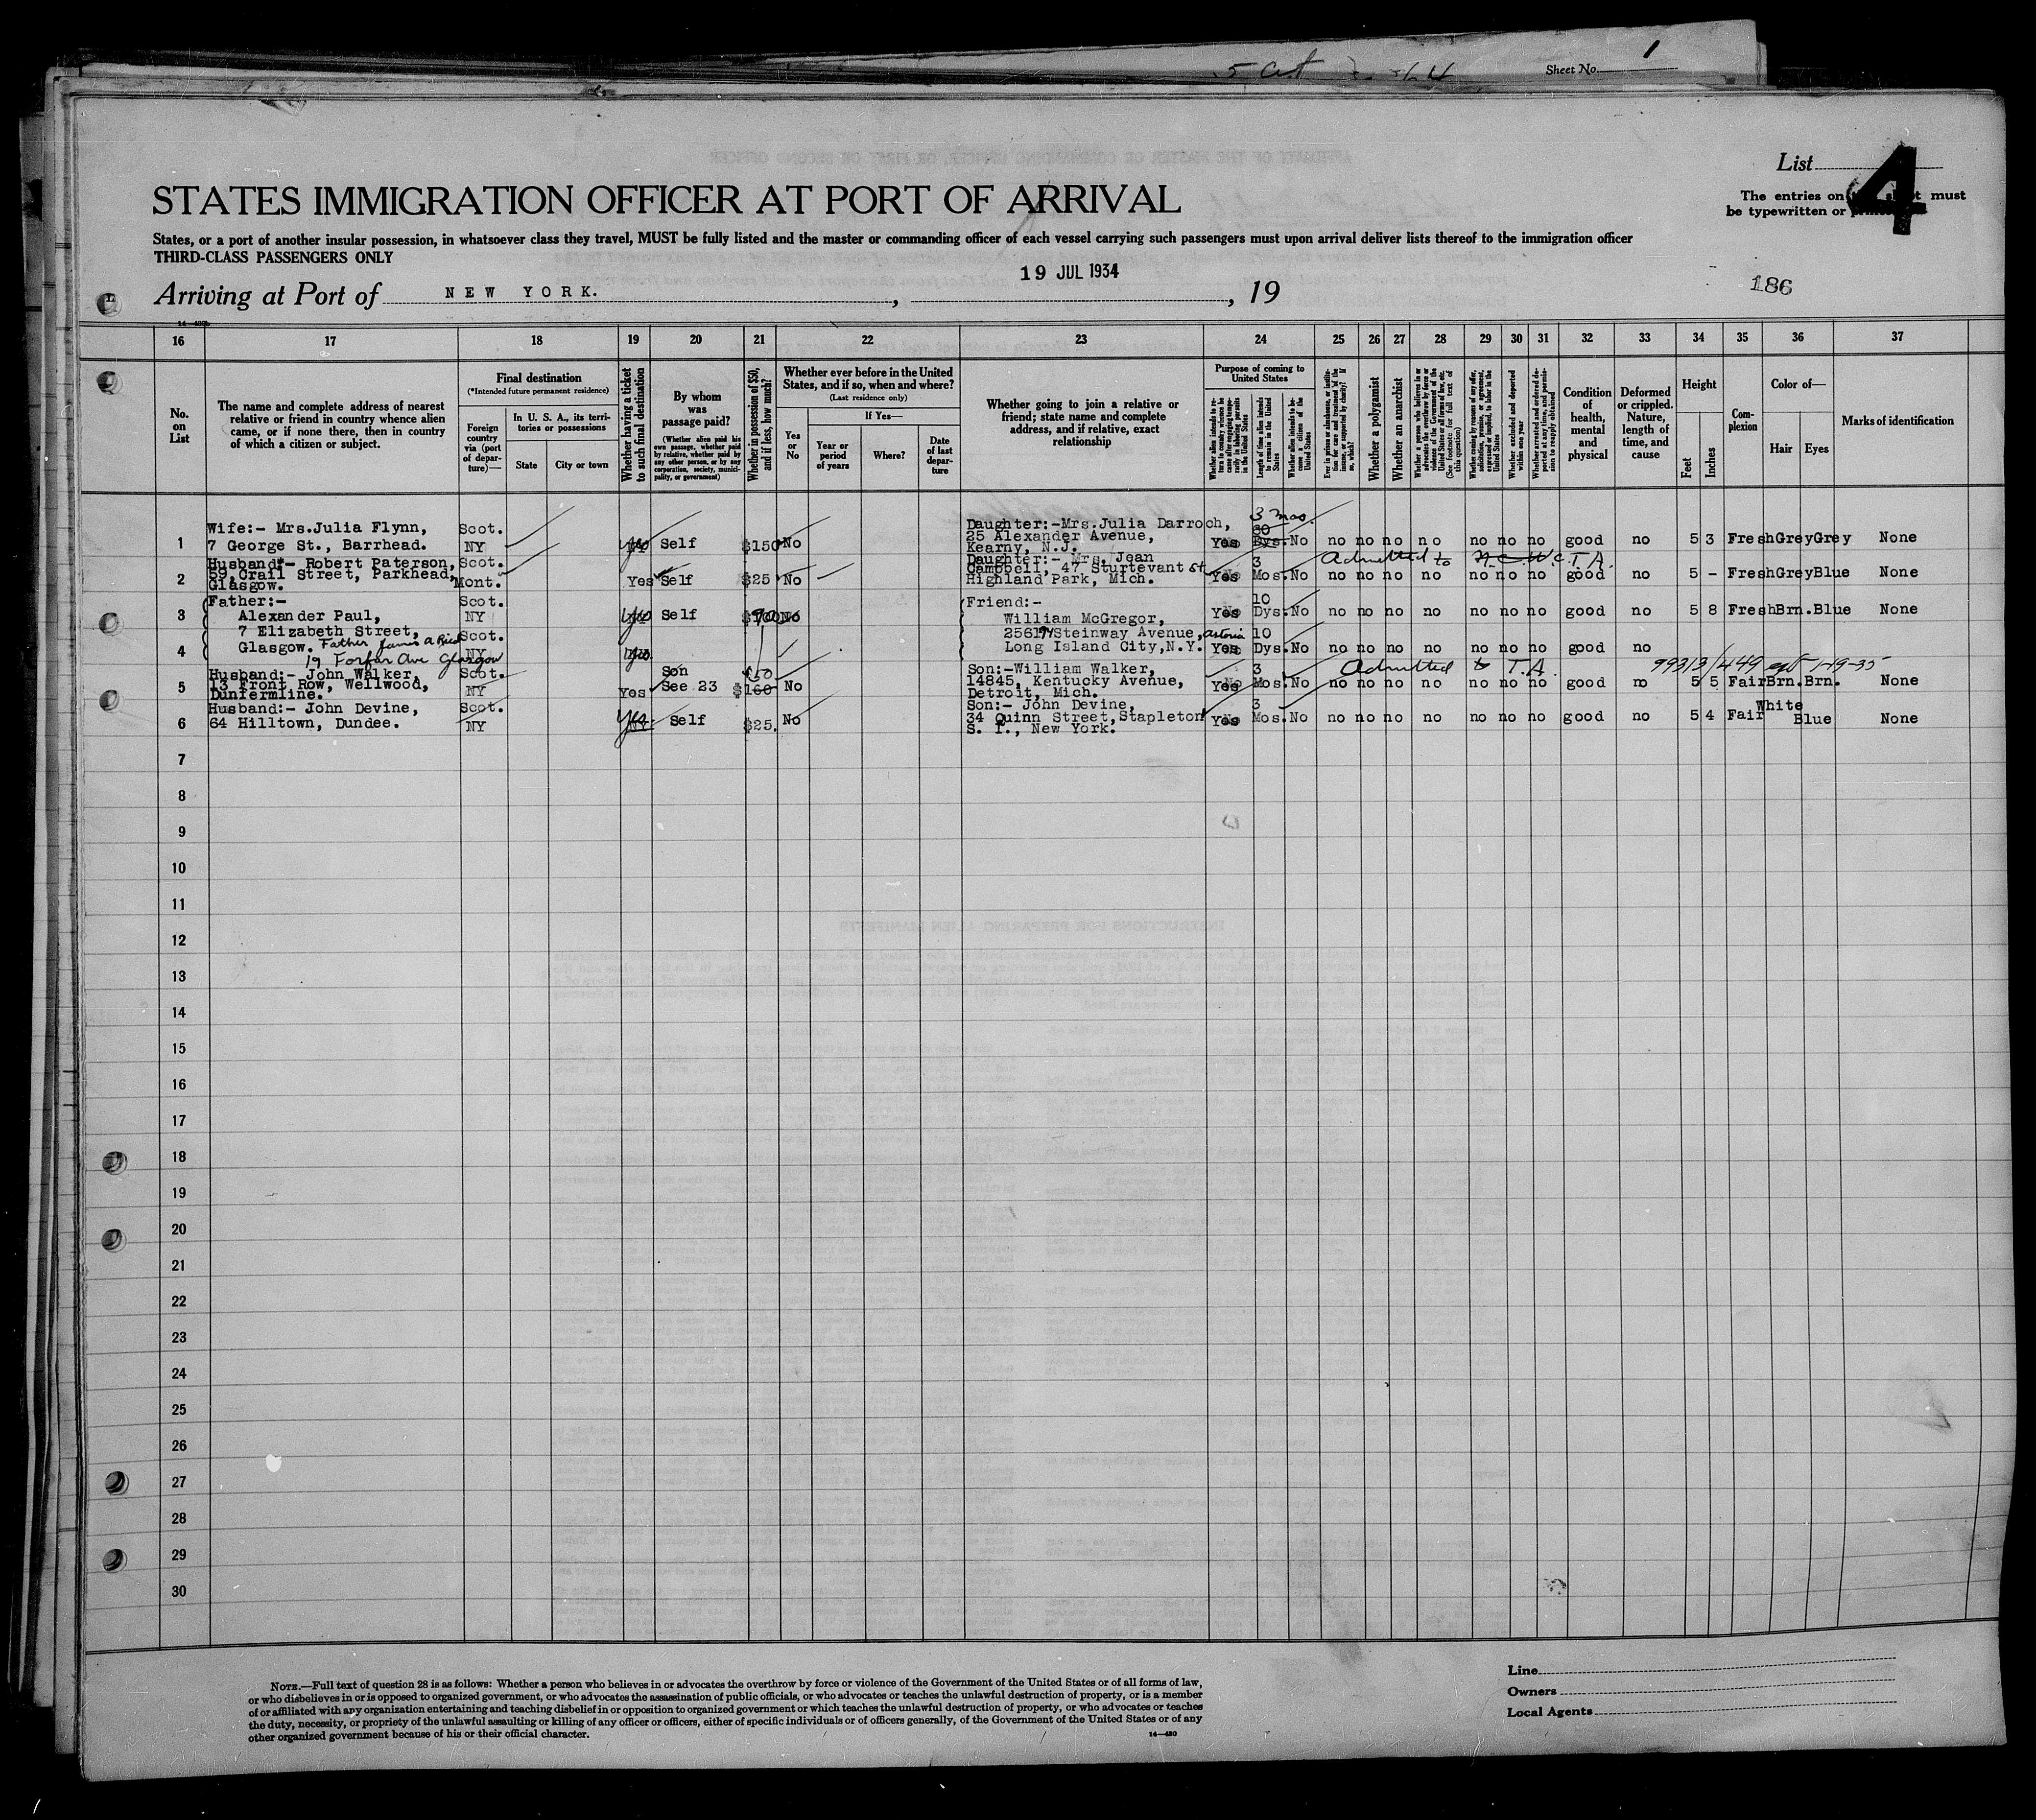 5
Sheet No. 1
List 4
The entries on must
be typewritten or
STATES IMMIGRATION OFFICER AT PORT OF ARRIVAL
States, or a port of another insular possession, in whatsoever class they travel, MUST be fully listed and the master or commanding officer of each vessel carrying such passengers must upon arrival deliver lists thereof to the immigration officer
THIRD-CLASS PASSENGERS ONLY
Arriving at Port of NEW YORK. , 19 JUL 1934 , 19
186
16 17 18 19 20 21 22 23 24 25 26 27 28 29 30 31 32 33 34 35 36 37
No. on List
The name and complete address of nearest relative or friend in country whence alien came, or if none there, then in country of which a citizen or subject.
Final destination
(*Intended future permanent residence)
Foreign country via (port of departure)—
In U. S. A., its territories or possessions
State
City or town
Whether having a ticket to such final destination
By whom was passage paid?
(Whether alien paid his own passage, whether paid by relative, whether paid by any other person, or by any corporation, society, municipality, or government)
Whether in possession of $50, and if less, how much?
Whether ever before in the United States, and if so, when and where?
(Last residence only)
Yes or No
If Yes—
Year or period of years
Where?
Date of last departure
Whether going to join a relative or friend; state name and complete address, and if relative, exact relationship
Purpose of coming to United States
Length of time alien intends to remain in the United States
Whether alien intends to become a citizen of the United States
Whether a polygamist
Whether an anarchist
(See footnote for full text of this question)
Condition of health, mental and physical
Deformed or crippled. Nature, length of time, and cause
Height
Feet
Inches
Complexion
Color of—
Hair
Eyes
Marks of identification
3 mos.
1 Wife:- Mrs.Julia Flynn, Scot. Daughter:-Mrs.Julia Darroch, 30
7 George St., Barrhead. NY Self $150 No 25 Alexander Avenue, Yes Dys. No no no no no no no no good no 5 3 Fresh Grey Grey None
Kearny, N.J.
2 Husband:- Robert Paterson, Scot. Daughter:- Mrs. Jean 3 Admitted to T.A.
59, Crail Street, Parkhead, Mont. Yes Self $25 No Campbell, 47 Sturtevant St Yes Mos. No no no no no no no no good no 5 - Fresh Grey Blue None
Glasgow. Highland Park, Mich.
3 Father:- Scot. Friend:- 10
Alexander Paul, NY Self No William McGregor, Yes Dys. No no no no no no no no good no 5 8 Fresh Brn. Blue None
4 7 Elizabeth Street, Scot. Steinway Avenue, Astoria 10
Glasgow. Father James NY Long Island City, N.Y. Yes Dys. No no no no no no no no good no
19 Forfar Ave Glasgow
5 Husband:- John Walker, Scot. Son Son:-William Walker, 3 Admitted to T.A. 99313/449 1-19-35
13 Front Row, Wellwood, NY Yes See 23 $160 No 14845, Kentucky Avenue, Yes Mos. No no no no no no no no good no 5 5 Fair Brn. Brn. None
Dunfermline. Detroit, Mich.
6 Husband:- John Devine, Scot. Son:- John Devine, 3
64 Hilltown, Dundee. NY Yes Self $25. No 34 Quinn Street, Stapleton Yes Mos. No no no no no no no no good no 5 4 Fair White Blue None
S. I., New York.
7
8
9
10
11
12
13
14
15
16
17
18
19
20
21
22
23
24
25
26
27
28
29
30
NOTE.—Full text of question 28 is as follows: Whether a person who believes in or advocates the overthrow by force or violence of the Government of the United States or of all forms of law,
or who disbelieves in or is opposed to organized government, or who advocates the assassination of public officials, or who advocates or teaches the unlawful destruction of property, or is a member
of or affiliated with any organization entertaining and teaching disbelief in or opposition to organized government or which teaches the unlawful destruction of property, or who advocates or teaches
the duty, necessity, or propriety of the unlawful assaulting or killing of any officer or officers, either of specific individuals or of officers generally, of the Government of the United States or of any
other organized government because of his or their official character.
14—480
Line
Owners
Local Agents